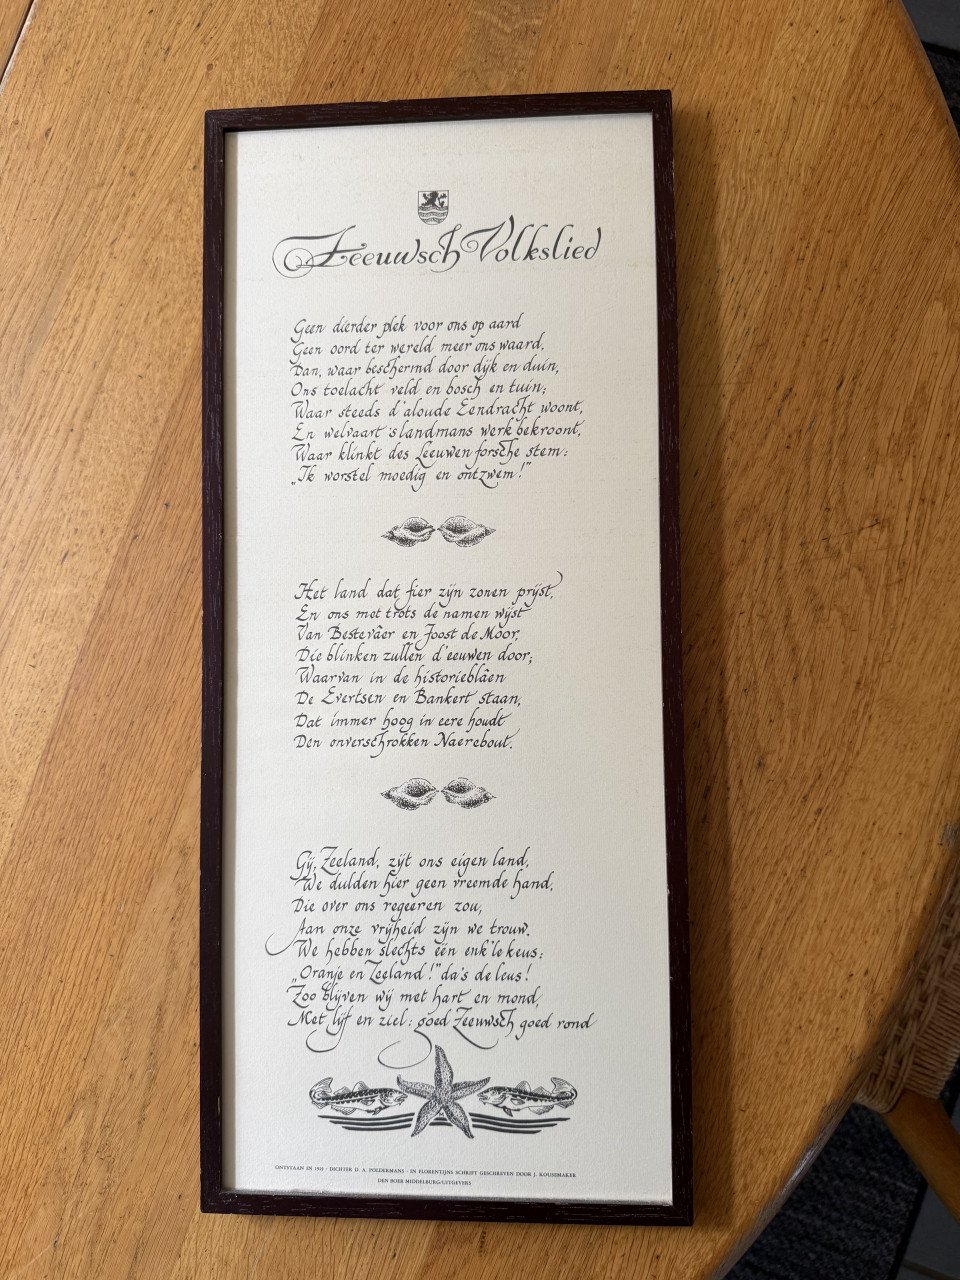 Zeeuwsch Volkslied
Geen dierder plek voor ons op aard
Geen oord ter wereld meer ons waard,
Dan, waar beschermd door dijk en duin,
Ons toelacht veld en bosch en tuin;
Waar steeds d'aloude Eendracht woont,
En welvaart 'slandmans werk bekroont,
Waar klinkt des Leeuwen forsche stem:
„Ik worstel moedig en ontzwem!”
Het land dat fier zijn zonen prijst,
En ons met trots de namen wijst
Van Bestevâer en Joost de Moor,
Die blinken zullen d'eeuwen door;
Waarvan in de historieblâen
De Evertsen en Bankert staan,
Dat immer hoog in eere houdt
Den onverschrokken Naerebout.
Gij, Zeeland, zijt ons eigen land,
We dulden hier geen vreemde hand,
Die over ons regeeren zou,
Aan onze vrijheid zijn we trouw.
We hebben slechts één enk'le keus:
„Oranje en Zeeland!” da's de leus!
Zoo blijven wij met hart en mond,
Met lijf en ziel: goed Zeeuwsch goed rond
ONTSTAAN IN 1919 · DICHTER D. A. POLDERMANS · IN FLORENTIJNS SCHRIFT GESCHREVEN DOOR J. KOUSEMAKER
DEN BOER MIDDELBURG/UITGEVERS